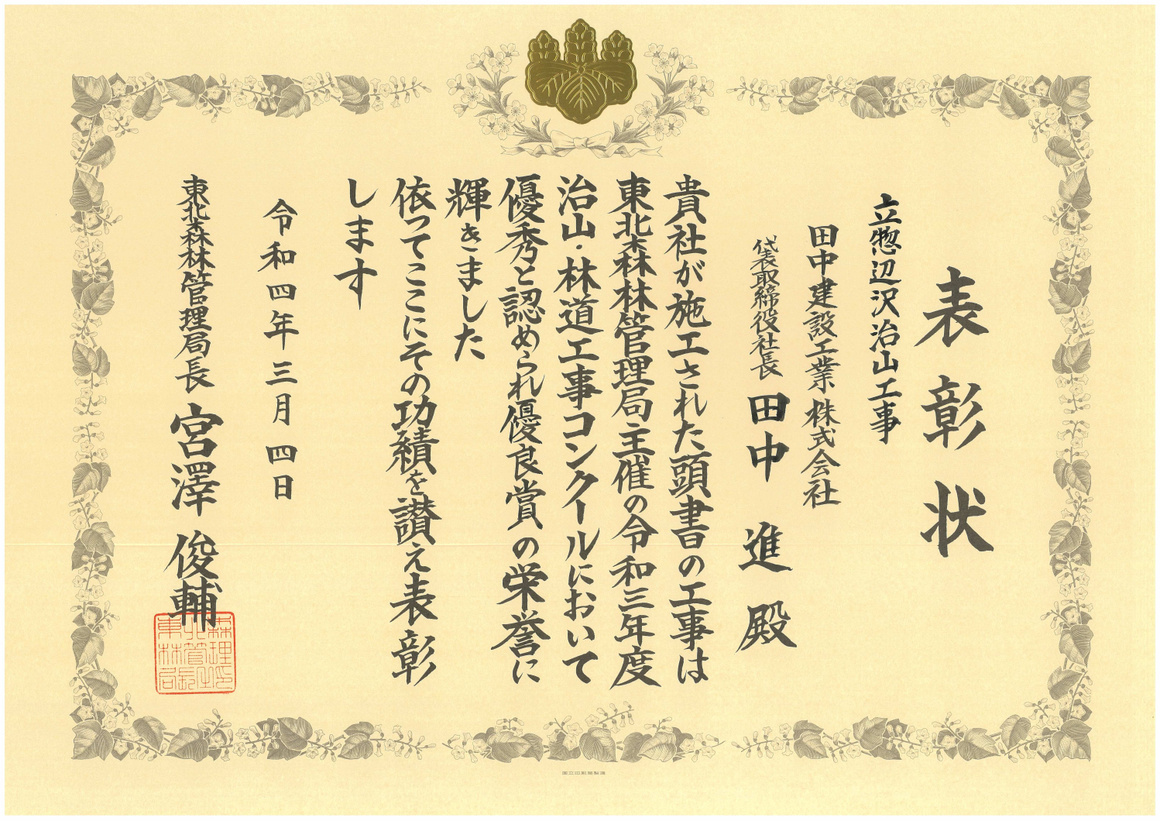 表彰状
立惣辺沢治山工事
田中建設工業株式会社
代表取締役社長 田中 進 殿
貴社が施工された頭書の工事は
東北森林管理局主催の令和三年度
治山・林道工事コンクールにおいて
優秀と認められ優良賞の栄誉に
輝きました
依ってここにその功績を讃え表彰
します
令和四年三月四日
東北森林管理局長 宮澤 俊輔